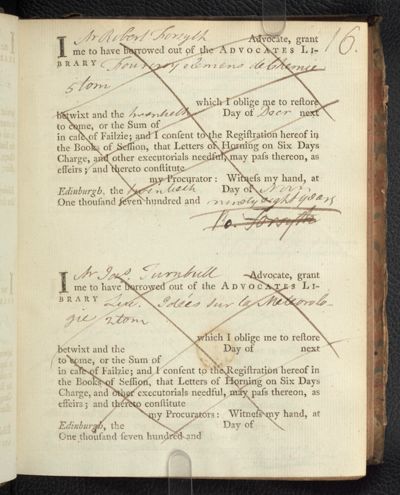 16.
I Mr Robert Forsyth Advocate, grant
me to have borrowed out of the ADVOCATES LI-
BRARY Fourcroy elemens de Chemie
5 tom
which I oblige me to reſtore
betwixt and the twentieth Day of Decr next
to come, or the Sum of
in caſe of Failzie; and I conſent to the Regiſtration hereof in
the Books of Seſſion, that Letters of Horning on Six Days
Charge, and other executorials needful, may paſs thereon, as
effeirs; and thereto conſtitute
my Procurator: Witneſs my hand, at
Edinburgh, the twentieth Day of Novr
One thouſand ſeven hundred and ninety eight years
Ro. Forsyth
I Mr Jas. Turnbull Advocate, grant
me to have borrowed out of the ADVOCATES LI-
BRARY Idées sur la Meteorolo-
gie 2 tom
which I oblige me to reſtore
betwixt and the Day of next
to come, or the Sum of
in caſe of Failzie; and I conſent to the Regiſtration hereof in
the Books of Seſſion, that Letters of Horning on Six Days
Charge, and other executorials needful, may paſs thereon, as
effeirs; and thereto conſtitute
my Procurators: Witneſs my hand, at
Edinburgh, the Day of
One thouſand ſeven hundred and